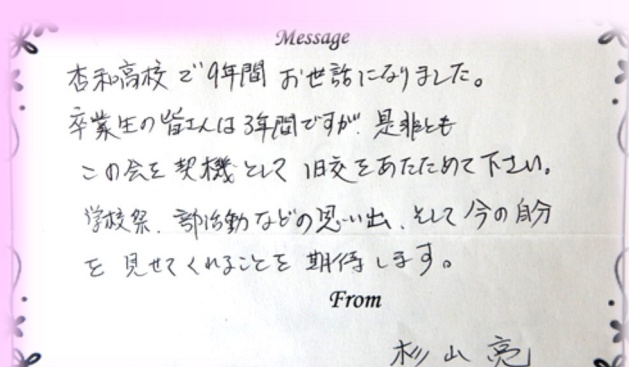 Message
杏和高校で9年間お世話になりました。
卒業生の皆さんは3年間ですが、是非とも
この会を契機として旧交をあたためて下さい。
学校祭、部活動などの思い出、そして今の自分
を見せてくれることを期待します。
From
杉山亮